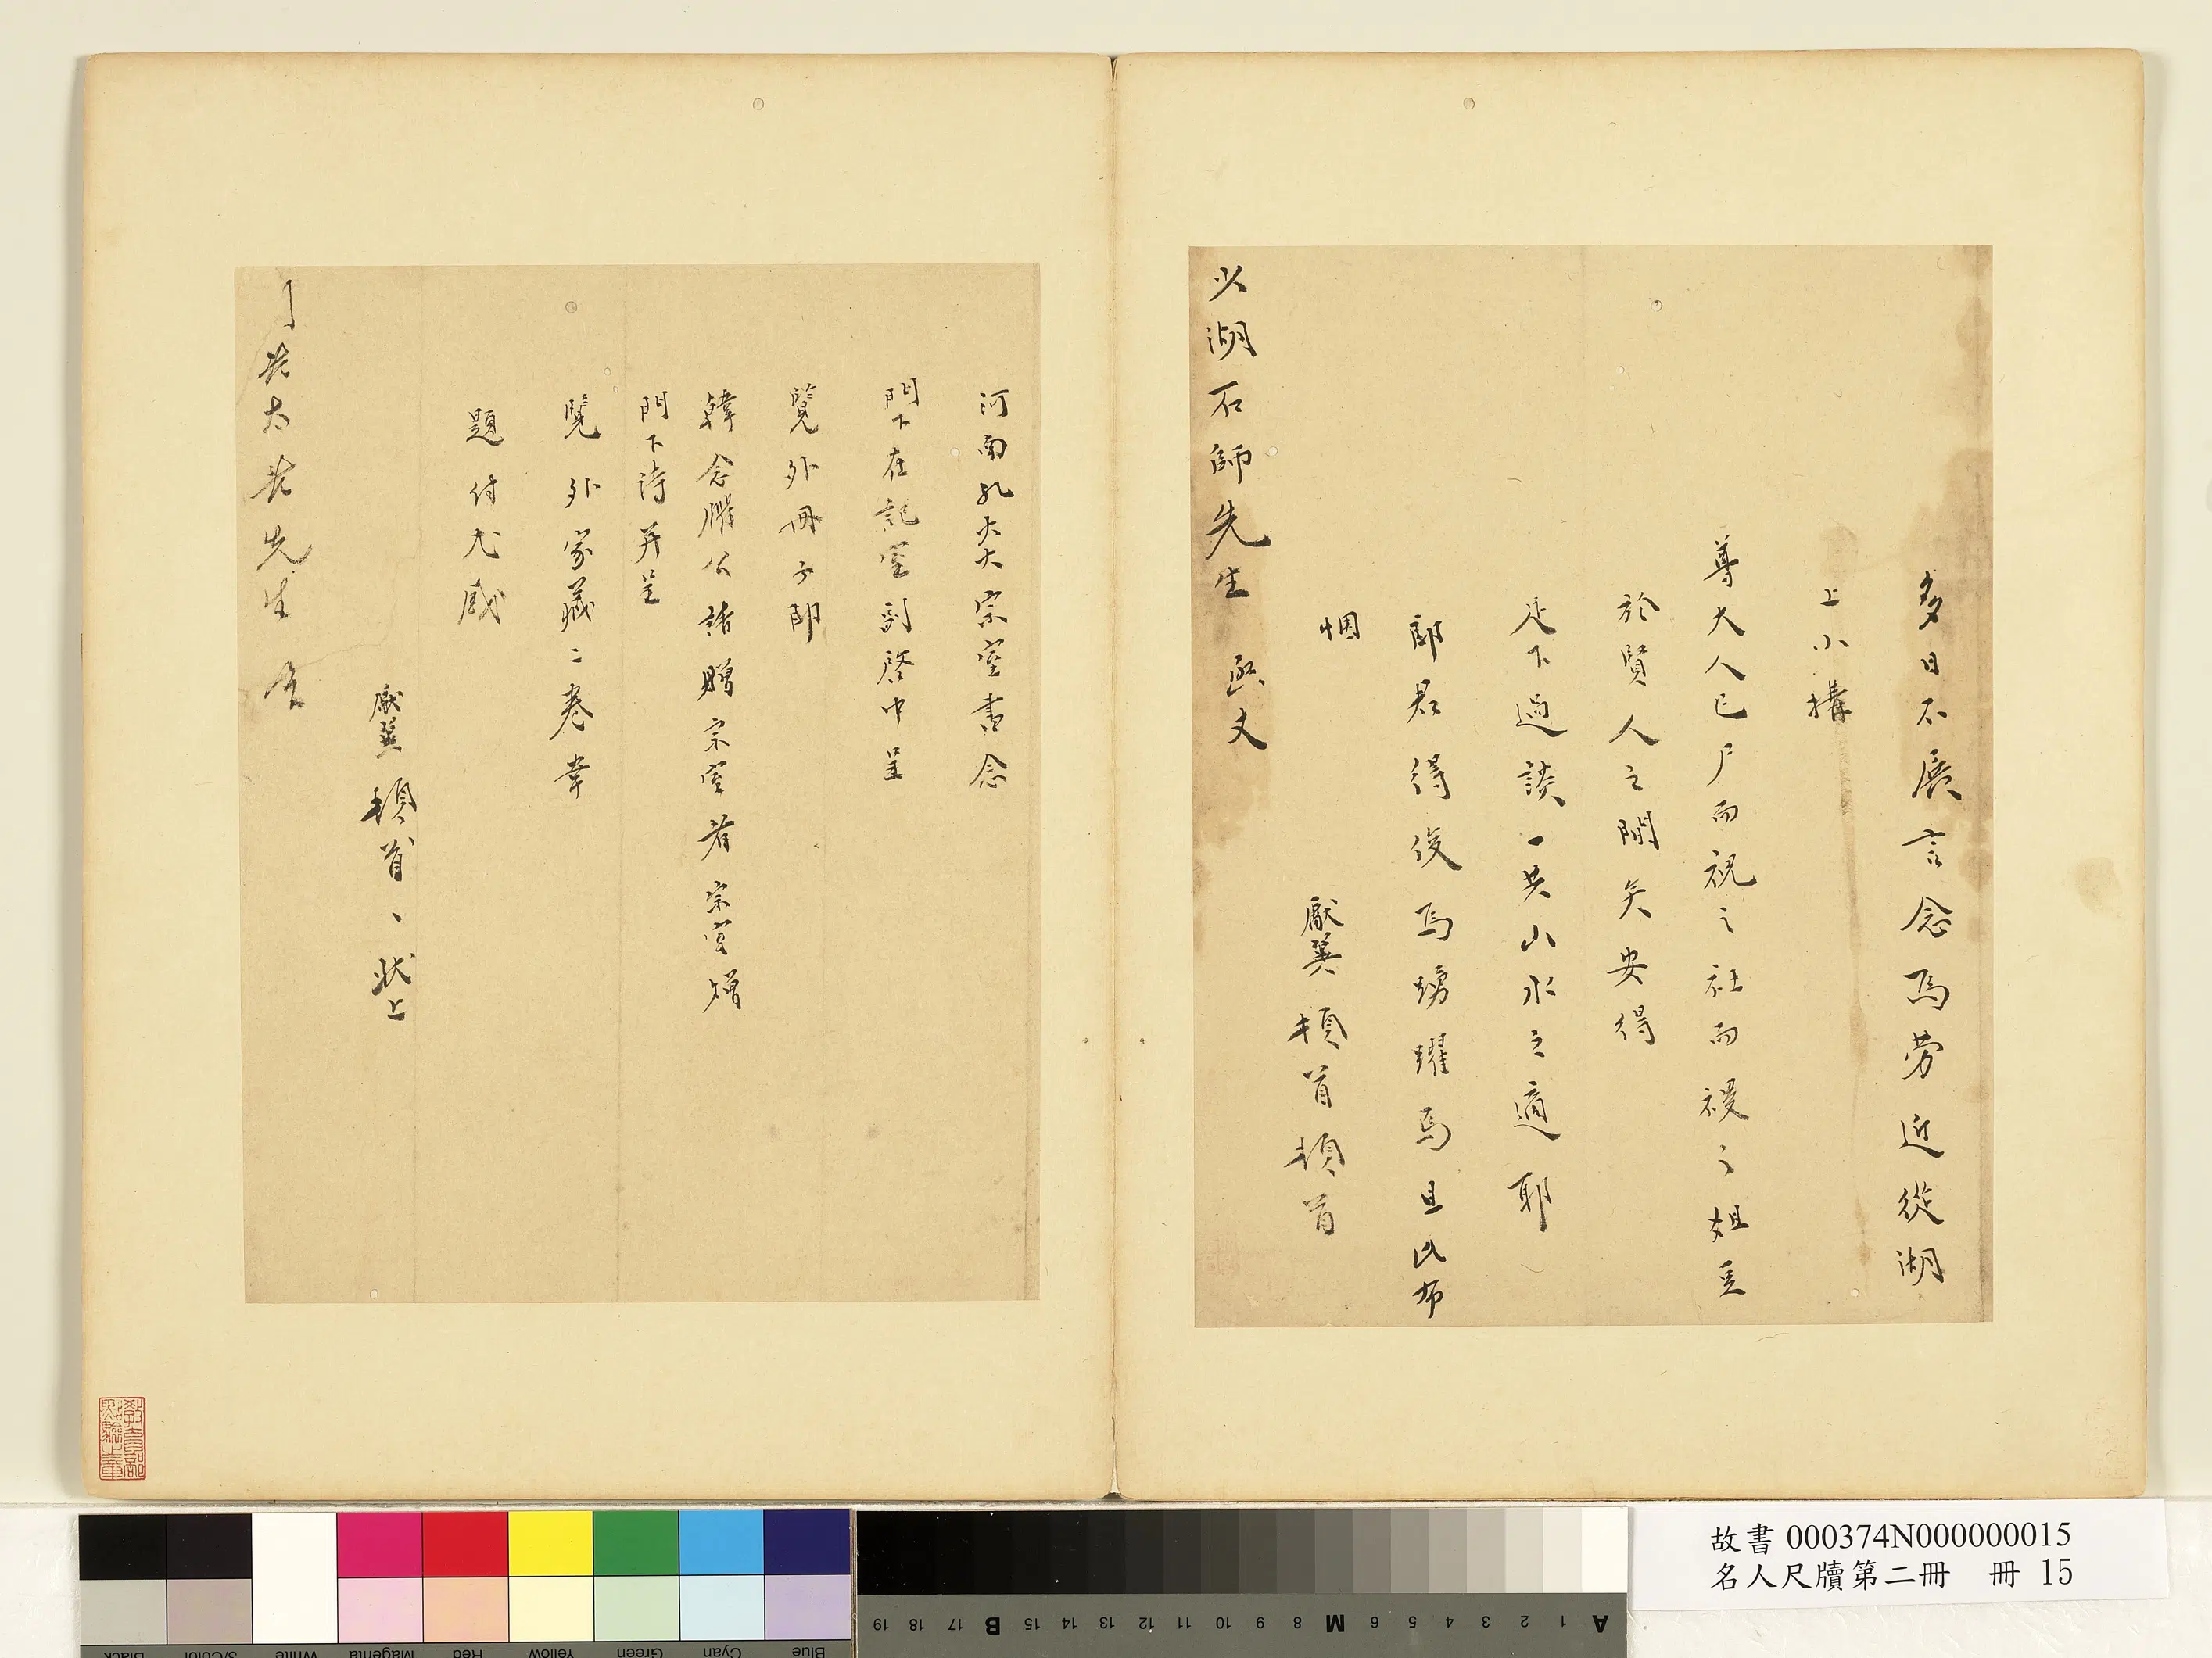 多日不展言念為勞近從湖
上小構
尊大人已尸而祝之社而禝之俎豆
於賢人之間矣安得
足下過談一共山水之適耶
郎君得俊為踴躍焉且此布
悃
獻翼頓首頓首
以湖石師先生函丈
河南孔太夫宗室書念
門下在記室副啓中呈
覽外冊子即
韓念公諸贈宗室者宗室
門下詩并呈
覽外家藏二卷幸
題付尤感
獻翼頓首、狀上
老太老先生
故書 000374N000000015
名人尺牘第二冊 冊 15
教育部
點驗之章
A 1 2 3 4 5 6 M 8 9 10 11 12 13 14 15 B 17 18 19
Blue Cyan Green Yellow Red Magenta White 3/Color Black